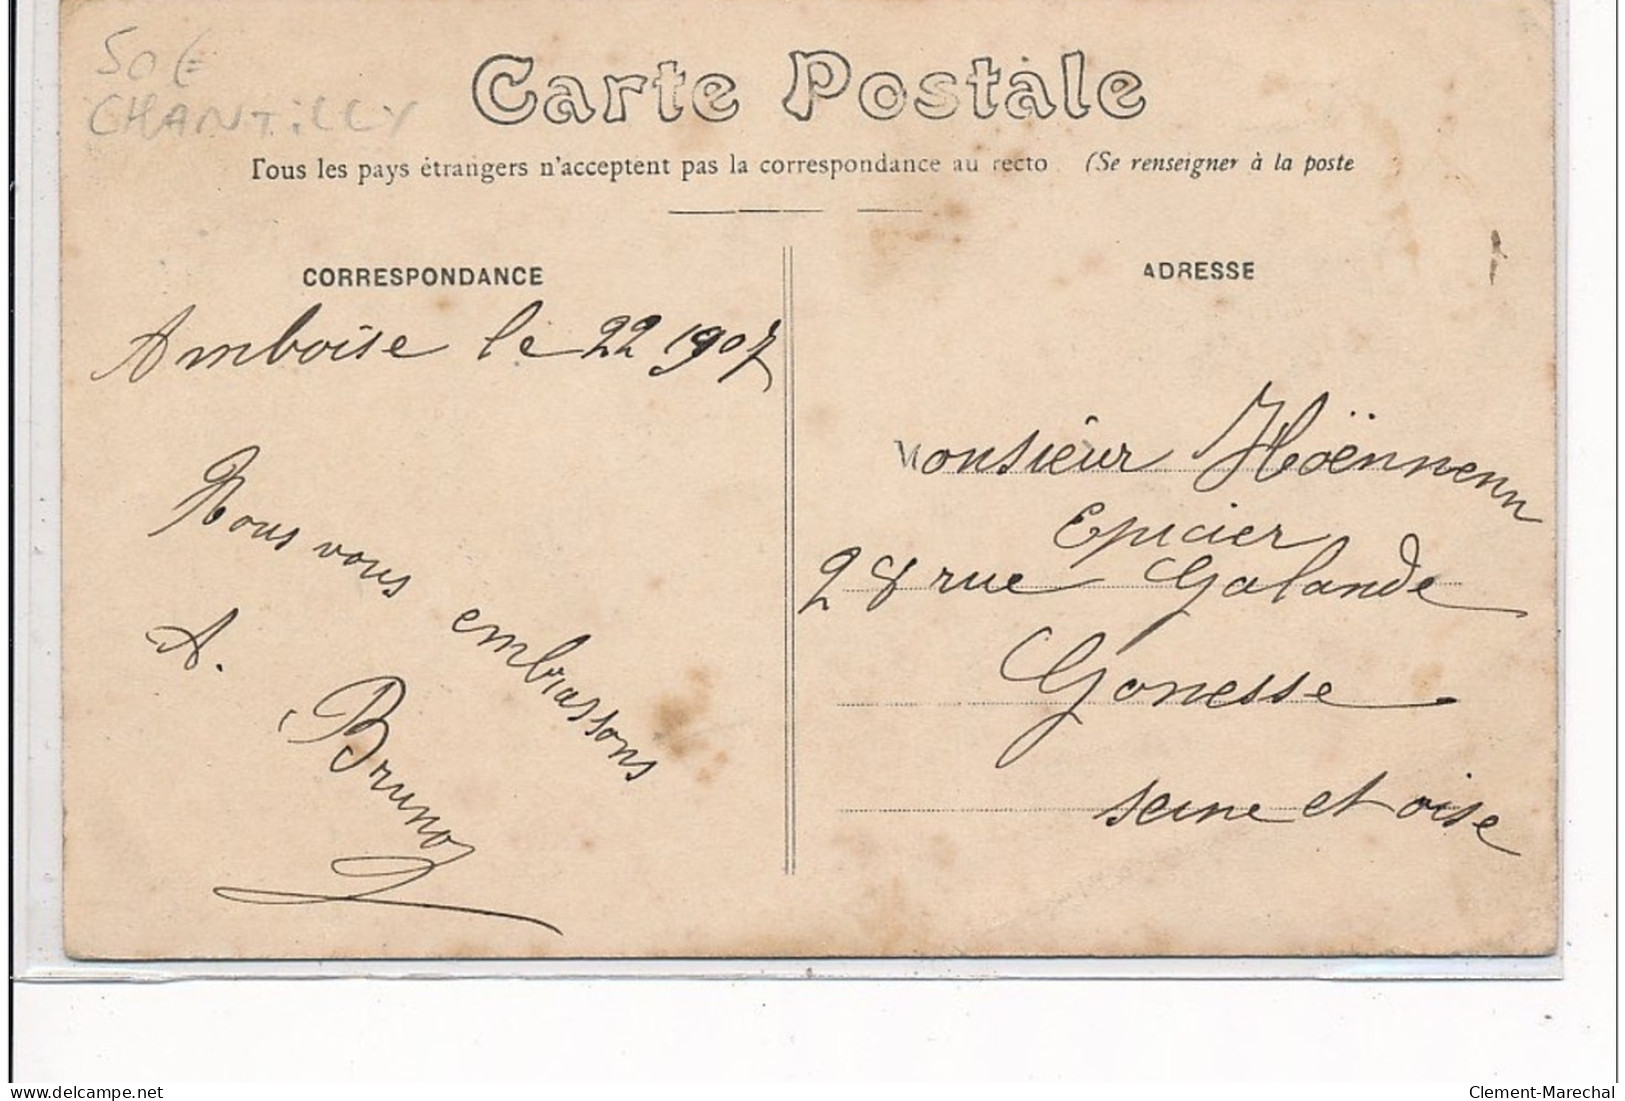 50€
CHANTILLY
Carte Postale
Tous les pays étrangers n'acceptent pas la correspondance au recto (Se renseigner à la poste
CORRESPONDANCE
Amboise le 22 1907
Nous vous embrassons
A. Bruno
ADRESSE
Monsieur Hoënnenn
Epicier
28 rue Galande
Gonesse
seine et oise
delcampe.net
Clement-Marechal